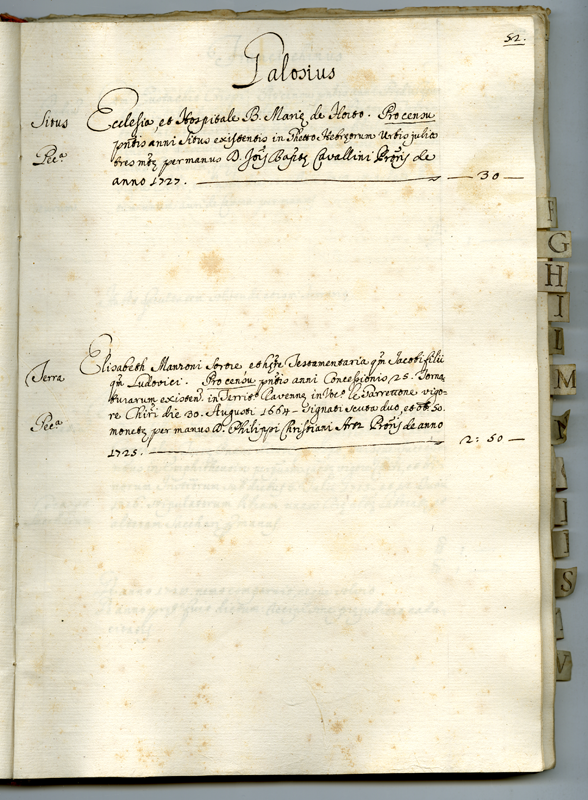 52.
Palosius
Situs Ecclesia, et Hospitale B. Mariæ de Horto. Pro censu
pñtis anni Situs existentis in Ghetto Hebræorum Urbis julia
Pec.ª tres mtæ per manus D. Joĩs Baptæ Cavallini Proris de
anno 1727. — 30 —
Elisabeth Manzoni Soror, et hæres Testamentaria qm̃ Jacobi filii
Terra qm̃ Ludovici. Pro censu pñtis anni Concessionis 25. Torna
turiarum existen. in Territ.º Ravennæ in Voc.º le Parretone vigo-
Pec.ª re Chirı̃ die 30. Augusti 1664. Signati Scuta duo, et 50.
monetæ per manus D. Philippi Christiani Proris de anno
1725. — 2: 50 —
F
G
H
I
I
M
I
I
S
A
V